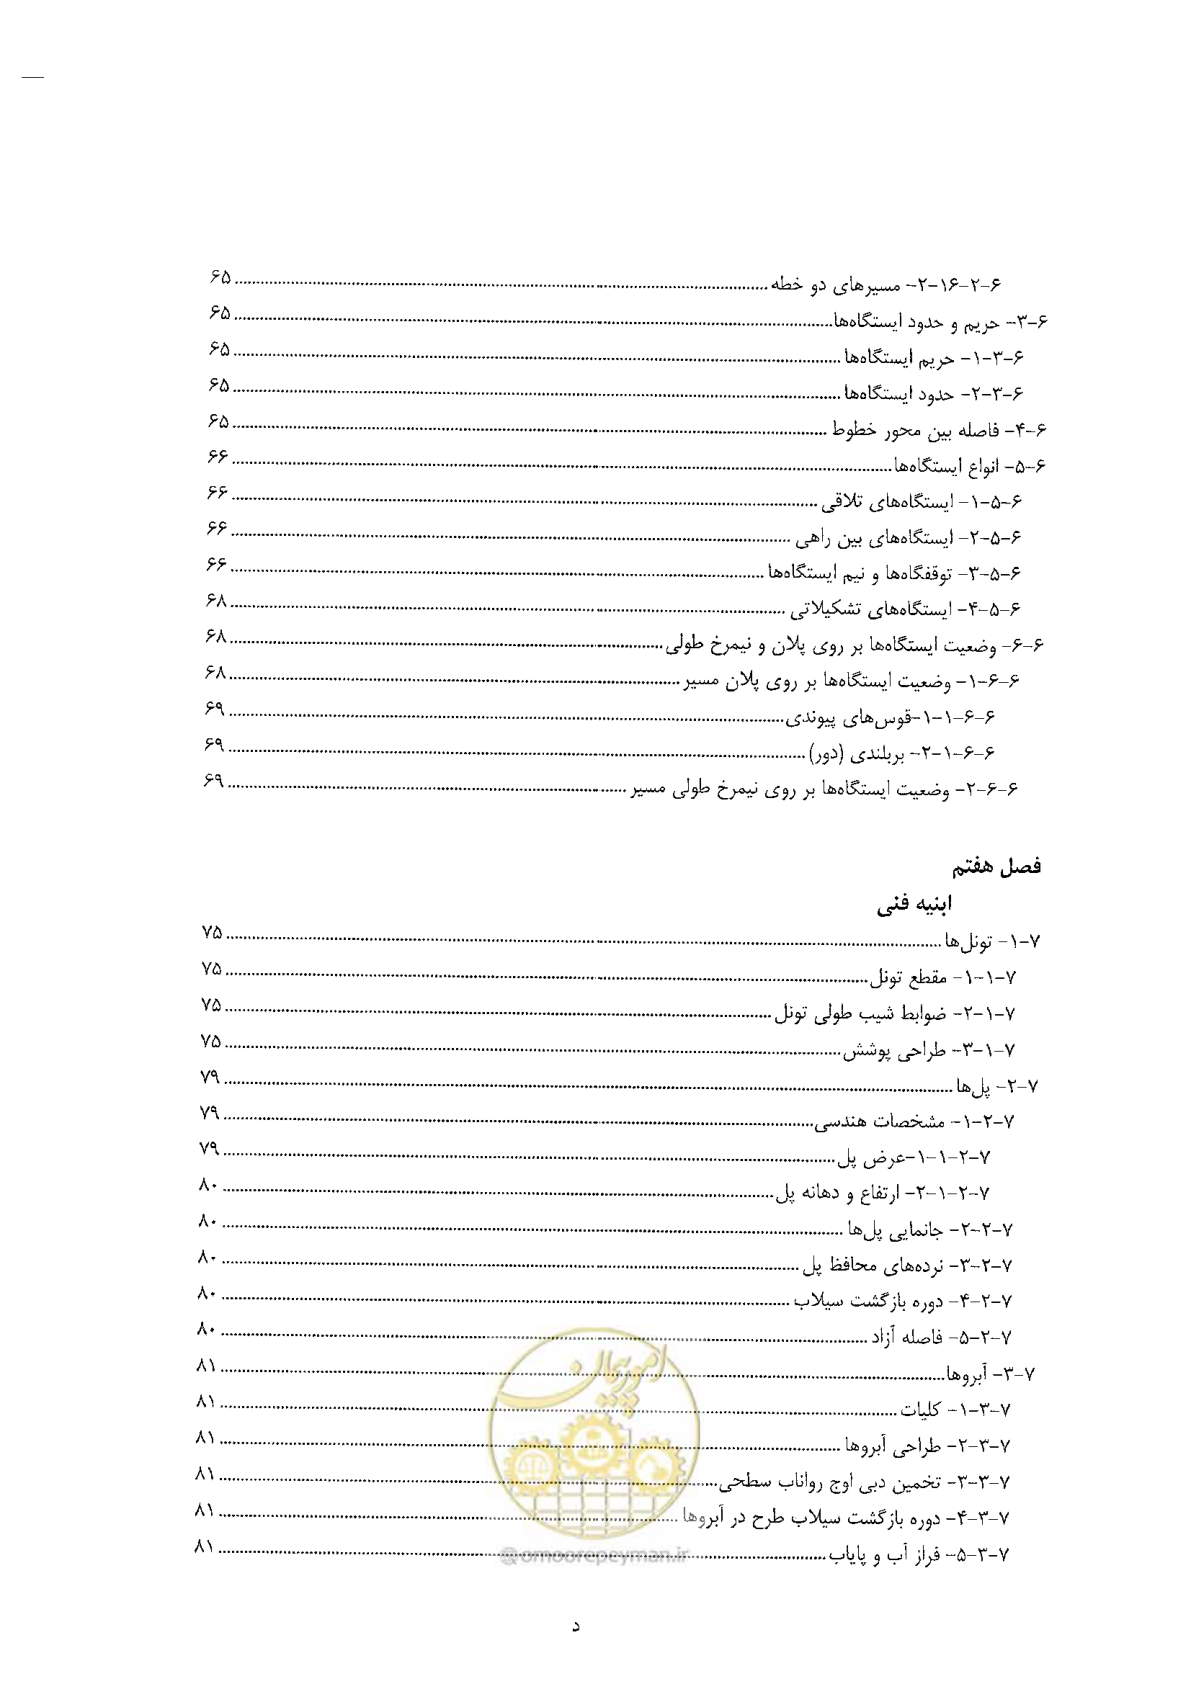 ۶-۲-۱۶-۲- مسیرهای دو خطه ........ ۶۵
۶-۳- حریم و حدود ایستگاه‌ها ........ ۶۵
۶-۳-۱- حریم ایستگاه‌ها ........ ۶۵
۶-۳-۲- حدود ایستگاه‌ها ........ ۶۵
۶-۴- فاصله بین محور خطوط ........ ۶۵
۶-۵- انواع ایستگاه‌ها ........ ۶۶
۶-۵-۱- ایستگاه‌های تلاقی ........ ۶۶
۶-۵-۲- ایستگاه‌های بین راهی ........ ۶۶
۶-۵-۳- توقفگاه‌ها و نیم ایستگاه‌ها ........ ۶۶
۶-۵-۴- ایستگاه‌های تشکیلاتی ........ ۶۸
۶-۶- وضعیت ایستگاه‌ها بر روی پلان و نیمرخ طولی ........ ۶۸
۶-۶-۱- وضعیت ایستگاه‌ها بر روی پلان مسیر ........ ۶۸
۶-۶-۱-۱-قوس‌های پیوندی ........ ۶۹
۶-۶-۱-۲- بربلندی (دور) ........ ۶۹
۶-۶-۲- وضعیت ایستگاه‌ها بر روی نیمرخ طولی مسیر ........ ۶۹
فصل هفتم
ابنیه فنی
۷-۱- تونل‌ها ........ ۷۵
۷-۱-۱- مقطع تونل ........ ۷۵
۷-۱-۲- ضوابط شیب طولی تونل ........ ۷۵
۷-۱-۳- طراحی پوشش ........ ۷۵
۷-۲- پل‌ها ........ ۷۹
۷-۲-۱- مشخصات هندسی ........ ۷۹
۷-۲-۱-۱-عرض پل ........ ۷۹
۷-۲-۱-۲- ارتفاع و دهانه پل ........ ۸۰
۷-۲-۲- جانمایی پل‌ها ........ ۸۰
۷-۲-۳- نرده‌های محافظ پل ........ ۸۰
۷-۲-۴- دوره بازگشت سیلاب ........ ۸۰
۷-۲-۵- فاصله آزاد ........ ۸۰
۷-۳- آبروها ........ ۸۱
۷-۳-۱- کلیات ........ ۸۱
۷-۳-۲- طراحی آبروها ........ ۸۱
۷-۳-۳- تخمین دبی اوج رواناب سطحی ........ ۸۱
۷-۳-۴- دوره بازگشت سیلاب طرح در آبروها ........ ۸۱
۷-۳-۵- فراز آب و پایاب ........ ۸۱
امور پیمان
@omoorepeyman.ir
د